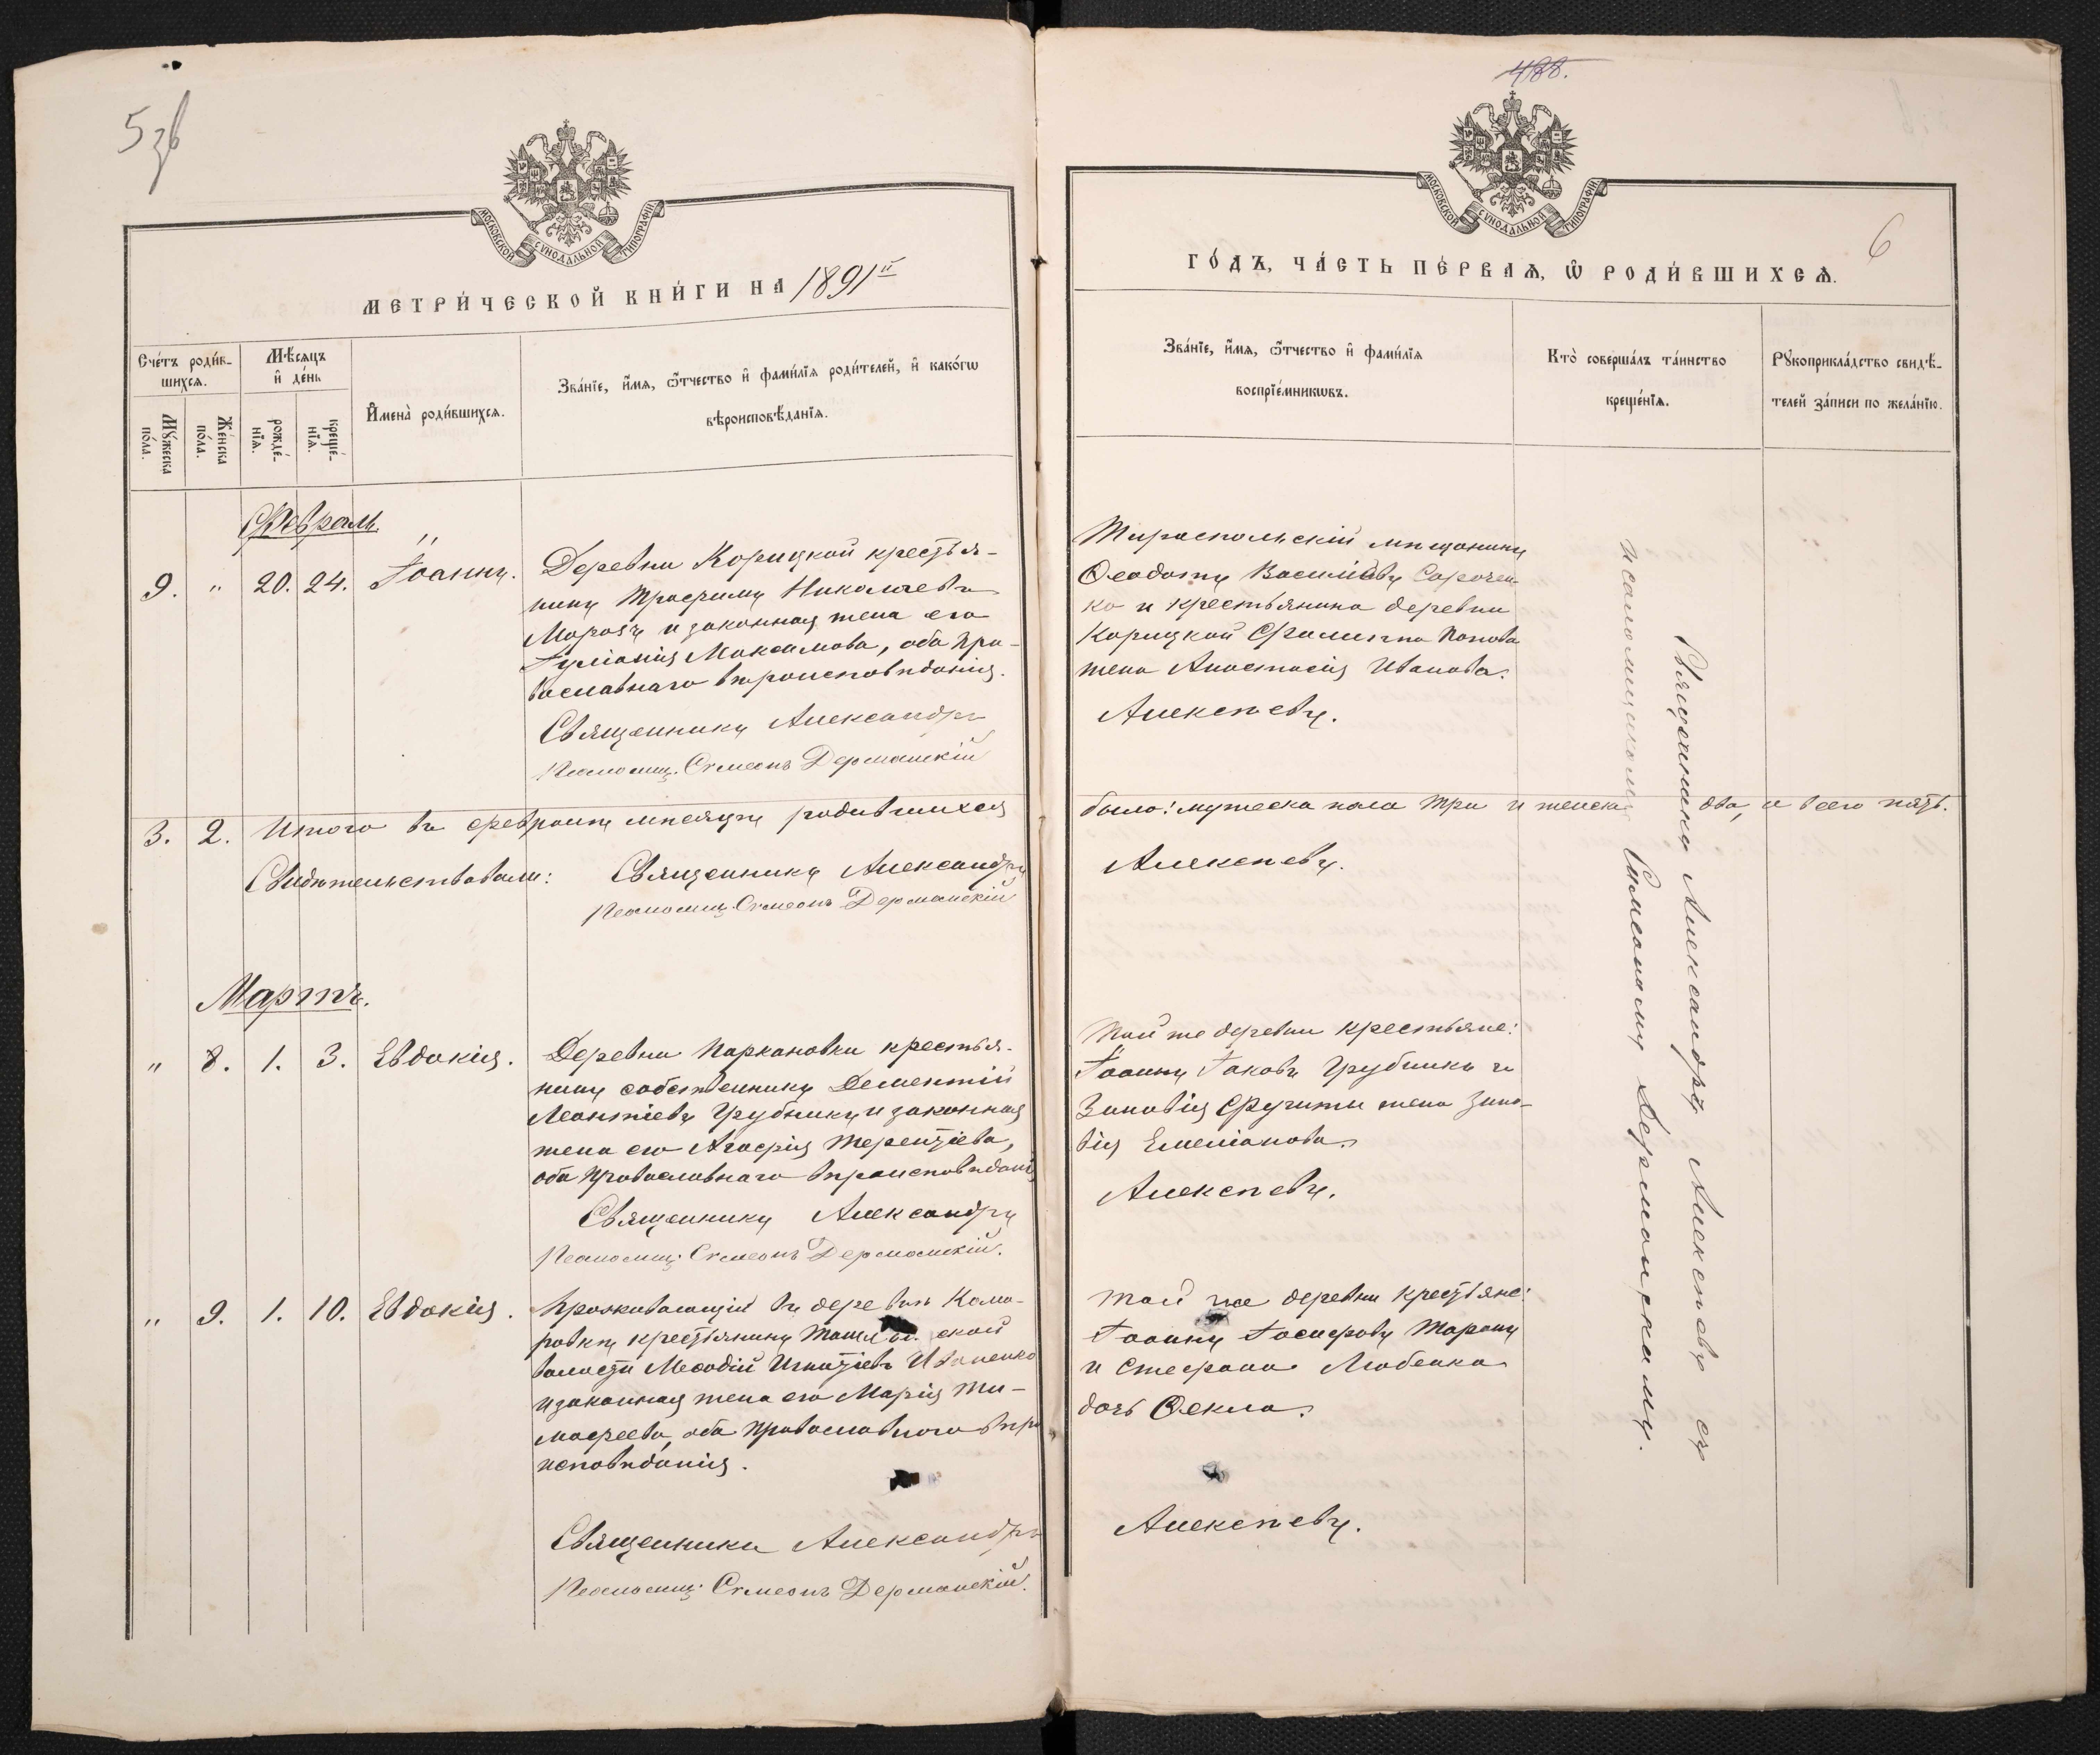 5 зв
МОСКОВСКОЙ СѴНОДАЛЬНОЙ ТИПОГРАФІИ
МЕТРИ́ЧЕСКОЙ КНИ́ГИ НА 1891й
Сче́тъ роди́в-
шихсѧ.
Мѣ́сѧцъ
и҆ де́нь
Мꙋ́жеска
по́ла.
Же́нска
по́ла.
рожде́-
нїѧ.
креще́-
нїѧ.
И҆мена̀ роди́вшихсѧ.
Зва́нїе, и҆́мѧ, ѻ҆́тчество и҆ фами́лїѧ роди́телей, и҆ како́гѡ
вѣроисповѣ́данїѧ.
Февраль
9. " 20. 24. Іоаннъ.
Деревни Корицкой крестья-
нинъ Трофимъ Николаевъ
Морозъ и законная жена его
Іуліанія Максимова, оба пра-
вославнаго вѣроисповѣданія.
Священникъ Александръ
Псаломщ. Симеонъ Дерманскій
3. 2. Итого въ февралѣ мѣсяцѣ родившихся
Свидѣтельствовали: Священникъ Александръ
Псаломщ. Симеонъ Дерманскій
Мартъ.
" 8. 1. 3. Евдокія.
Деревни Паркановки крестья-
нинъ собственникъ Дементій
Леонтіевъ Грубникъ и законная
жена его Агафія Терентіева,
оба Православнаго вѣроисповѣданія
Священникъ Александръ
Псаломщ. Симеонъ Дерманскій.
" 9. 1. 10. Евдокія.
Проживающій въ деревнѣ Кома-
ровкѣ крестьянинъ ской
волости Меѳодій Игнатіевъ
и законная жена его Марія Ти-
мофеева, оба Православнаго вѣро
исповѣданія.
Священникъ Александръ
Псаломщ. Симеонъ Дерманскій.
488.
МОСКОВСКОЙ СѴНОДАЛЬНОЙ ТИПОГРАФІИ
6
ГО́ДЪ, ЧА́СТЬ ПЕ́РВАѦ, Ѡ҆ РОДИ́ВШИХСѦ.
Зва́нїе, и҆́мѧ, ѻ҆́тчество и҆ фами́лїѧ
воспрїе́мникѡвъ.
Кто̀ соверша́лъ та́инство
креще́нїѧ.
Рꙋкоприкла́дство свидѣ́-
телей за́писи по жела́нїю.
Тираспольскій мѣщанинъ
Ѳеодотъ Васильевъ Сорочен-
ко и крестьянина деревни
Корицкой Филиппа Попова
жена Анастасія Иванова.
Алексѣевъ.
было: мужеска пола три и женска два, а всего пять.
Алексѣевъ.
Той же деревни крестьяне:
Іоаннъ Іаковъ Грубникъ и
Зиновія жена Зино-
вія Емеліанова.
Алексѣевъ.
Той же деревни крестьяне:
Іоаннъ Іосифовъ Таранъ
и Стефана Любенка
дочь Ѳекла.
Алексѣевъ.
Священникъ Александръ Алексѣевъ съ
псаломщикомъ Симеономъ Дерманскимъ.